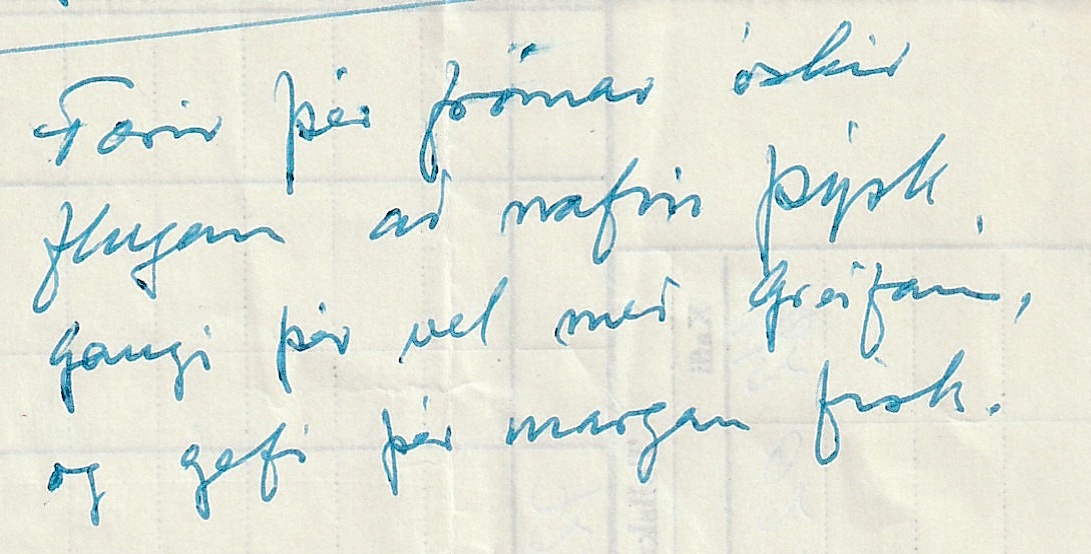 Færir þér frómar óskir
flugan að nafni þýsk,
gangi þér vel með Greifann,
og gefi þér margan fisk.